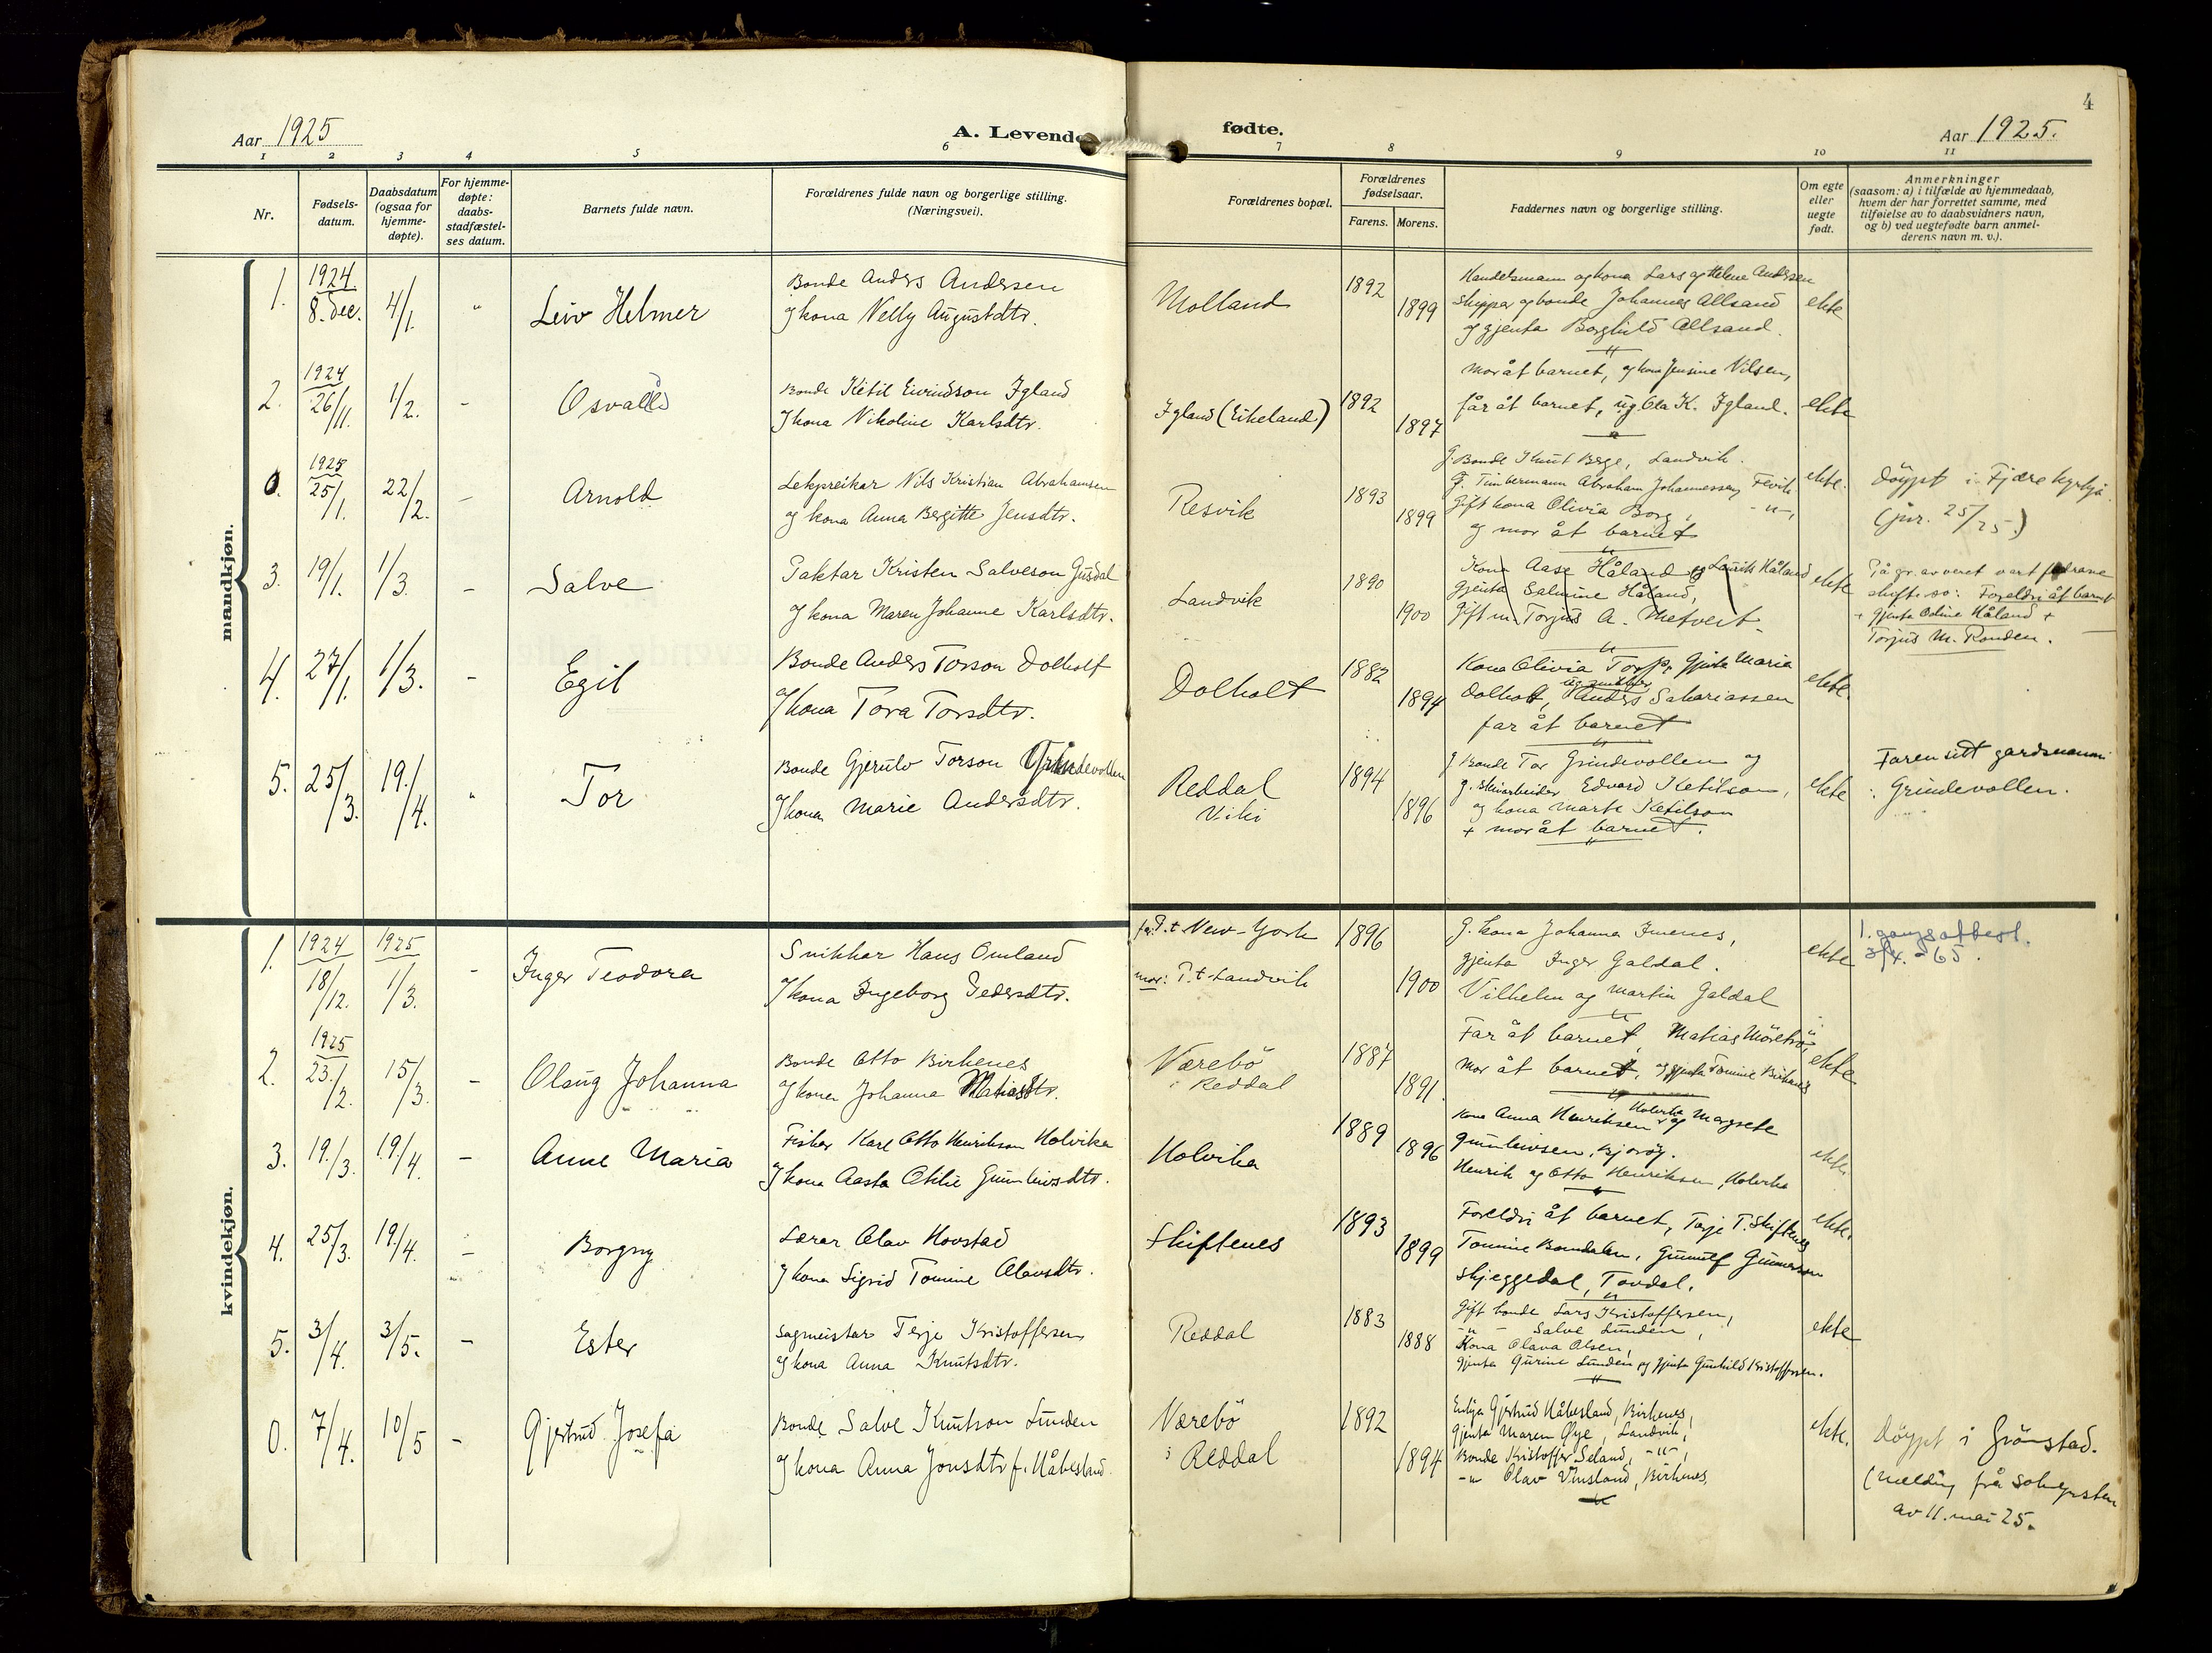 4
Aar 1925
A. Levende fødte.
Aar 1925.
1 2 3 4 5 6 7 8 9 10 11
Nr.
Fødsels-
datum.
Daabsdatum
(ogsaa for
hjemme-
døpte).
For hjemme-
døpte:
daabs-
stadfæstel-
ses datum.
Barnets fulde navn.
Forældrenes fulde navn og borgerlige stilling.
(Næringsvei).
Forældrenes bopæl.
Forældrenes
fødselsaar.
Farens. Morens.
Faddernes navn og borgerlige stilling.
Om egte
eller
uegte
født.
Anmerkninger
(saasom: a) i tilfælde av hjemmedaab,
hvem der har forrettet samme, med
tilføielse av to daabsvidners navn,
og b) ved uegtefødte barn anmel-
derens navn m. v.).
mandkjøn.
1.
1924
8. dec.
4/1.
"
Leiv Helmer
Bonde Anders Andersen
og kona Nelly Augustdtr.
Molland
1892
1899
Handelsmann og kona Lars og Helene Andersen
skipper og bonde Johannes Allsand
og gjenta Borghild Allsand.
ekte
2.
1924
26/11.
1/2.
-
Osvald
Bonde Ketil Eivindson Igland
og kona Nikoline Karlsdtr.
Igland (Eikeland)
1892
1897
Mor åt barnet, og kona Jensine Nilsen,
far åt barnet, ug. Ola K. Igland.
ekte
0.
1925
25/1.
22/2.
-
Arnold
Lekpreikar Nils Kristian Abrahamsen
og kona Anna Bergitte Jensdtr.
Resvik
1893
1899
G. Bonde Knut Berge, Landvik.
G. Timbermann Abraham Johannessen, Fevik
Gift kona Olivia Borg, -"-,
og mor åt barnet
ekte.
Döypt i Fjære kyrkja
(jnr. 25/25.)
3.
19/1.
1/3.
-
Salve
Paktar Kristen Salveson Gusdal
og kona Maren Johanne Karlsdtr.
Landvik
1890
1900
Kona Aase Håland og Laurits Håland
Gjenta Salmine Håland,
Gift m. Torjus A. Metveit.
ekte
På gr. av veret vart fadrane
skift. so: Foreldri åt barnet
+ gjenta Odine Håland +
Torjus M. Ronden.
4.
27/1.
1/3.
-
Egil
Bonde Anders Torson Dolholt
og kona Tora Torsdtr.
Dolholt
1882
1894
Kona Olivia Torp, Gjenta Maria
Dolholt, Anders Sakariassen
far åt barnet
ekte.
5.
25/3.
19./4.
"
Tor
Bonde Gjerulv Torson Grindevollen
og kona Marie Andersdtr.
Reddal
Viki
1894
1896
G Bonde Tor Grindevollen og
g. skinarbeider Edvard Ketilson,
og kona Marte Ketilson
+ mor åt barnet.
ekte
Faren sitt gardsnamn
: Grindevollen.
kvindekjøn.
1.
1924
18/12.
1925
1/3.
-
Inger Teodora
Snikkar Hans Omland
og kona Ingeborg Pedersdtr.
far: P.t. New-York
mor: P.t. Landvik
1896
1900
G. kona Johanna Imenes,
gjenta Inger Galdal.
Vilhelm og Martin Galdal
ekte
1. gangs attest.
3/4. - 65.
2.
1925
23./2.
15/3.
-
Olaug Johanna
Bonde Otto Birkenes
og kona Johanna Matiasdtr.
Nærebö
i Reddal
1887
1891.
Far åt barnet, Matias
Mor åt barnet, og gjenta Tomine Birkenes
ekte
3.
19./3.
19./4.
-
Anne Maria
Fisker Karl Otto Henrikson Holvika
og kona Aasta Otilie Gunleivsdtr.
Holvika
1889
1896
Kona Anna Henriksen Holvika og Margrete
Gunleivsen,
Henrik og Otto Henriksen, Holvika
ekte.
4.
25/3.
19/4.
-
Borgny
Lærar Olav Hovstad
og kona Sigrid Tomine Olavsdtr.
Skiftenes
1893
1899
Foreldri åt barnet, Terje T. Skiftenes
Tomine Gunnulf Gunnarson
Skjeggedal, Tovdal.
ekte.
5.
3/4.
3/5.
-
Ester
Sagmeister Terje Kristoffersen
og kona Anna Knutsdtr.
Reddal
1883
1888
Gift bonde Lars Kristoffersen,
-"- Salve Lunden,
Kona Olava Olsen,
gjenta Gurine Lunden og gjenta Gunhild Kristoffersen.
ekte
0.
7/4.
10/5
-
Gjertrud Josefa
Bonde Salve Knutson Lunden
og kona Anna Jonsdtr f. Håbesland
Nærebö
i Reddal
1892
1894
Enkja Gjertrud Håbesland, Birkenes,
Gjenta Maren Øye, Landvik,
Bonde Kristoffer Seland, -"-,
-"- Olav Vinsland, Birkenes
ekte.
Döypt i Grömstad.
(melding frå soknepresten
av 11. mai 25.